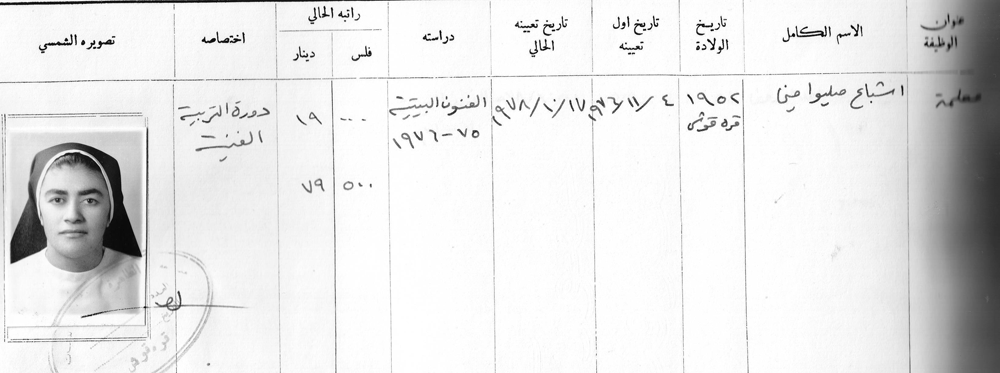 عنوان الوظيفة
الاسم الكامل
تاريخ الولادة
تاريخ اول تعيينه
تاريخ تعيينه الحالي
دراسته
راتبه الحالي
فلس
دينار
اختصاصه
تصويره الشمسي
معلمة
اشباع صليوا
١٩٥٢
قره قوش
١٩٧٦/١١/٤
١٩٧٨/١٠/١٧
الفنون البيتية
٧٥-١٩٧٦
٠٠٠
١٩
دورة التربية
الفنية
٥٠٠
٧٩